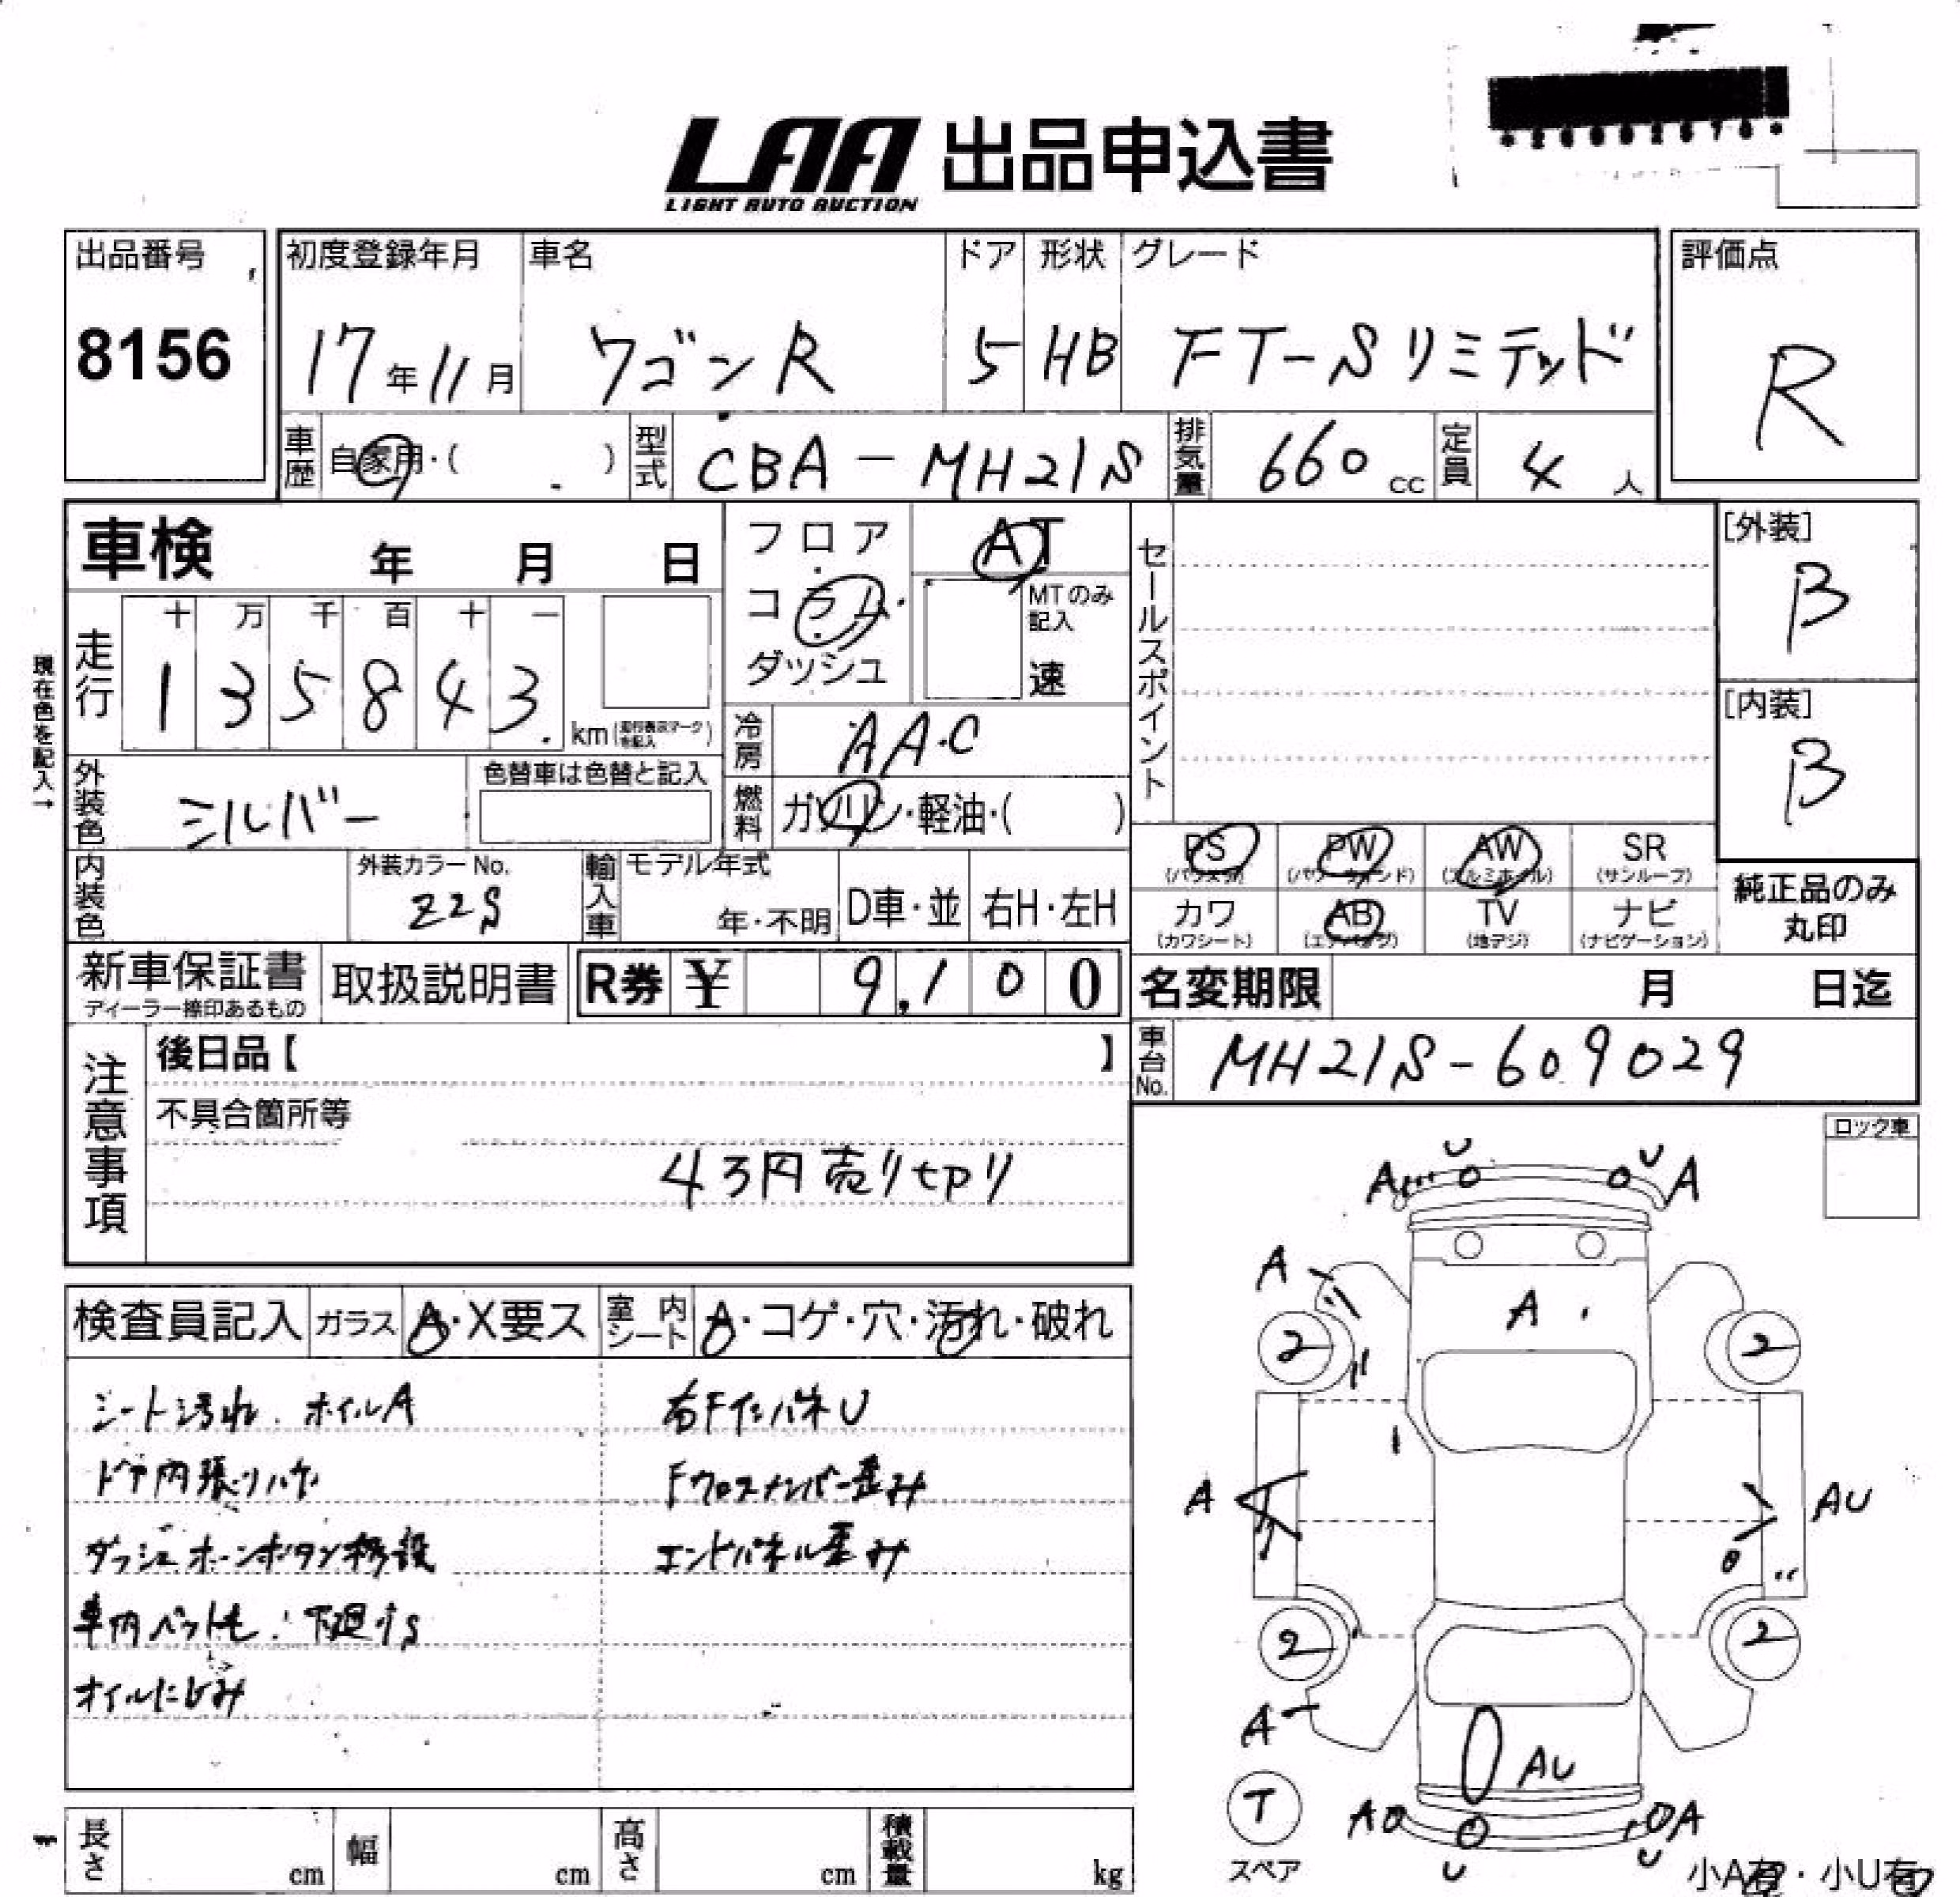 LAA 出品申込書
LIGHT AUTO AUCTION
出品番号
8156
初度登録年月
17年11月
車名
ワゴンR
ドア
5
形状
HB
グレード
FT-Sリミテッド
評価点
R
車歴 自家用・( )
型式 CBA-MH21S
排気量 660cc
定員 4人
車検 年 月 日
フロア
コラム
ダッシュ
AT
MTのみ記入
速
セールスポイント
[外装]
B
[内装]
B
現在色を記入→
走行
十 万 千 百 十 一
1 3 5 8 4 3 km (走行表示マークを記入)
冷房 AAC
燃料 ガソリン・軽油・( )
外装色 シルバー
色替車は色替と記入
内装色
外装カラーNo.
Z2S
輸入車
モデル年式
年・不明
D車・並
右H・左H
PS (パワステ)
PW (パワーウィンド)
AW (アルミホイル)
SR (サンルーフ)
カワ (カワシート)
AB (エアバッグ)
TV (地デジ)
ナビ (ナビゲーション)
純正品のみ
丸印
新車保証書
ディーラー捺印あるもの
取扱説明書
R券 ¥ 9,100
名変期限 月 日迄
車台No. MH21S-609029
注意事項
後日品【 】
不具合箇所等
4万円売り切り
ロック車
検査員記入
ガラス A・X要ス
室内シート A・コゲ・穴・汚れ・破れ
シート汚れ. ホイルA
ドア内張りハゲ
ダッシュ ホーンボタン移設
車内ペット毛. 下廻りS
オイルにじみ
右FインパネU
Fクロスメンバー歪み
エンドパネル歪み
U U
A A
A
A
2 2
A AU
2 2
A
AU
T
スペア
A A
U U
小A有・小U有
長さ cm
幅 cm
高さ cm
積載量 kg